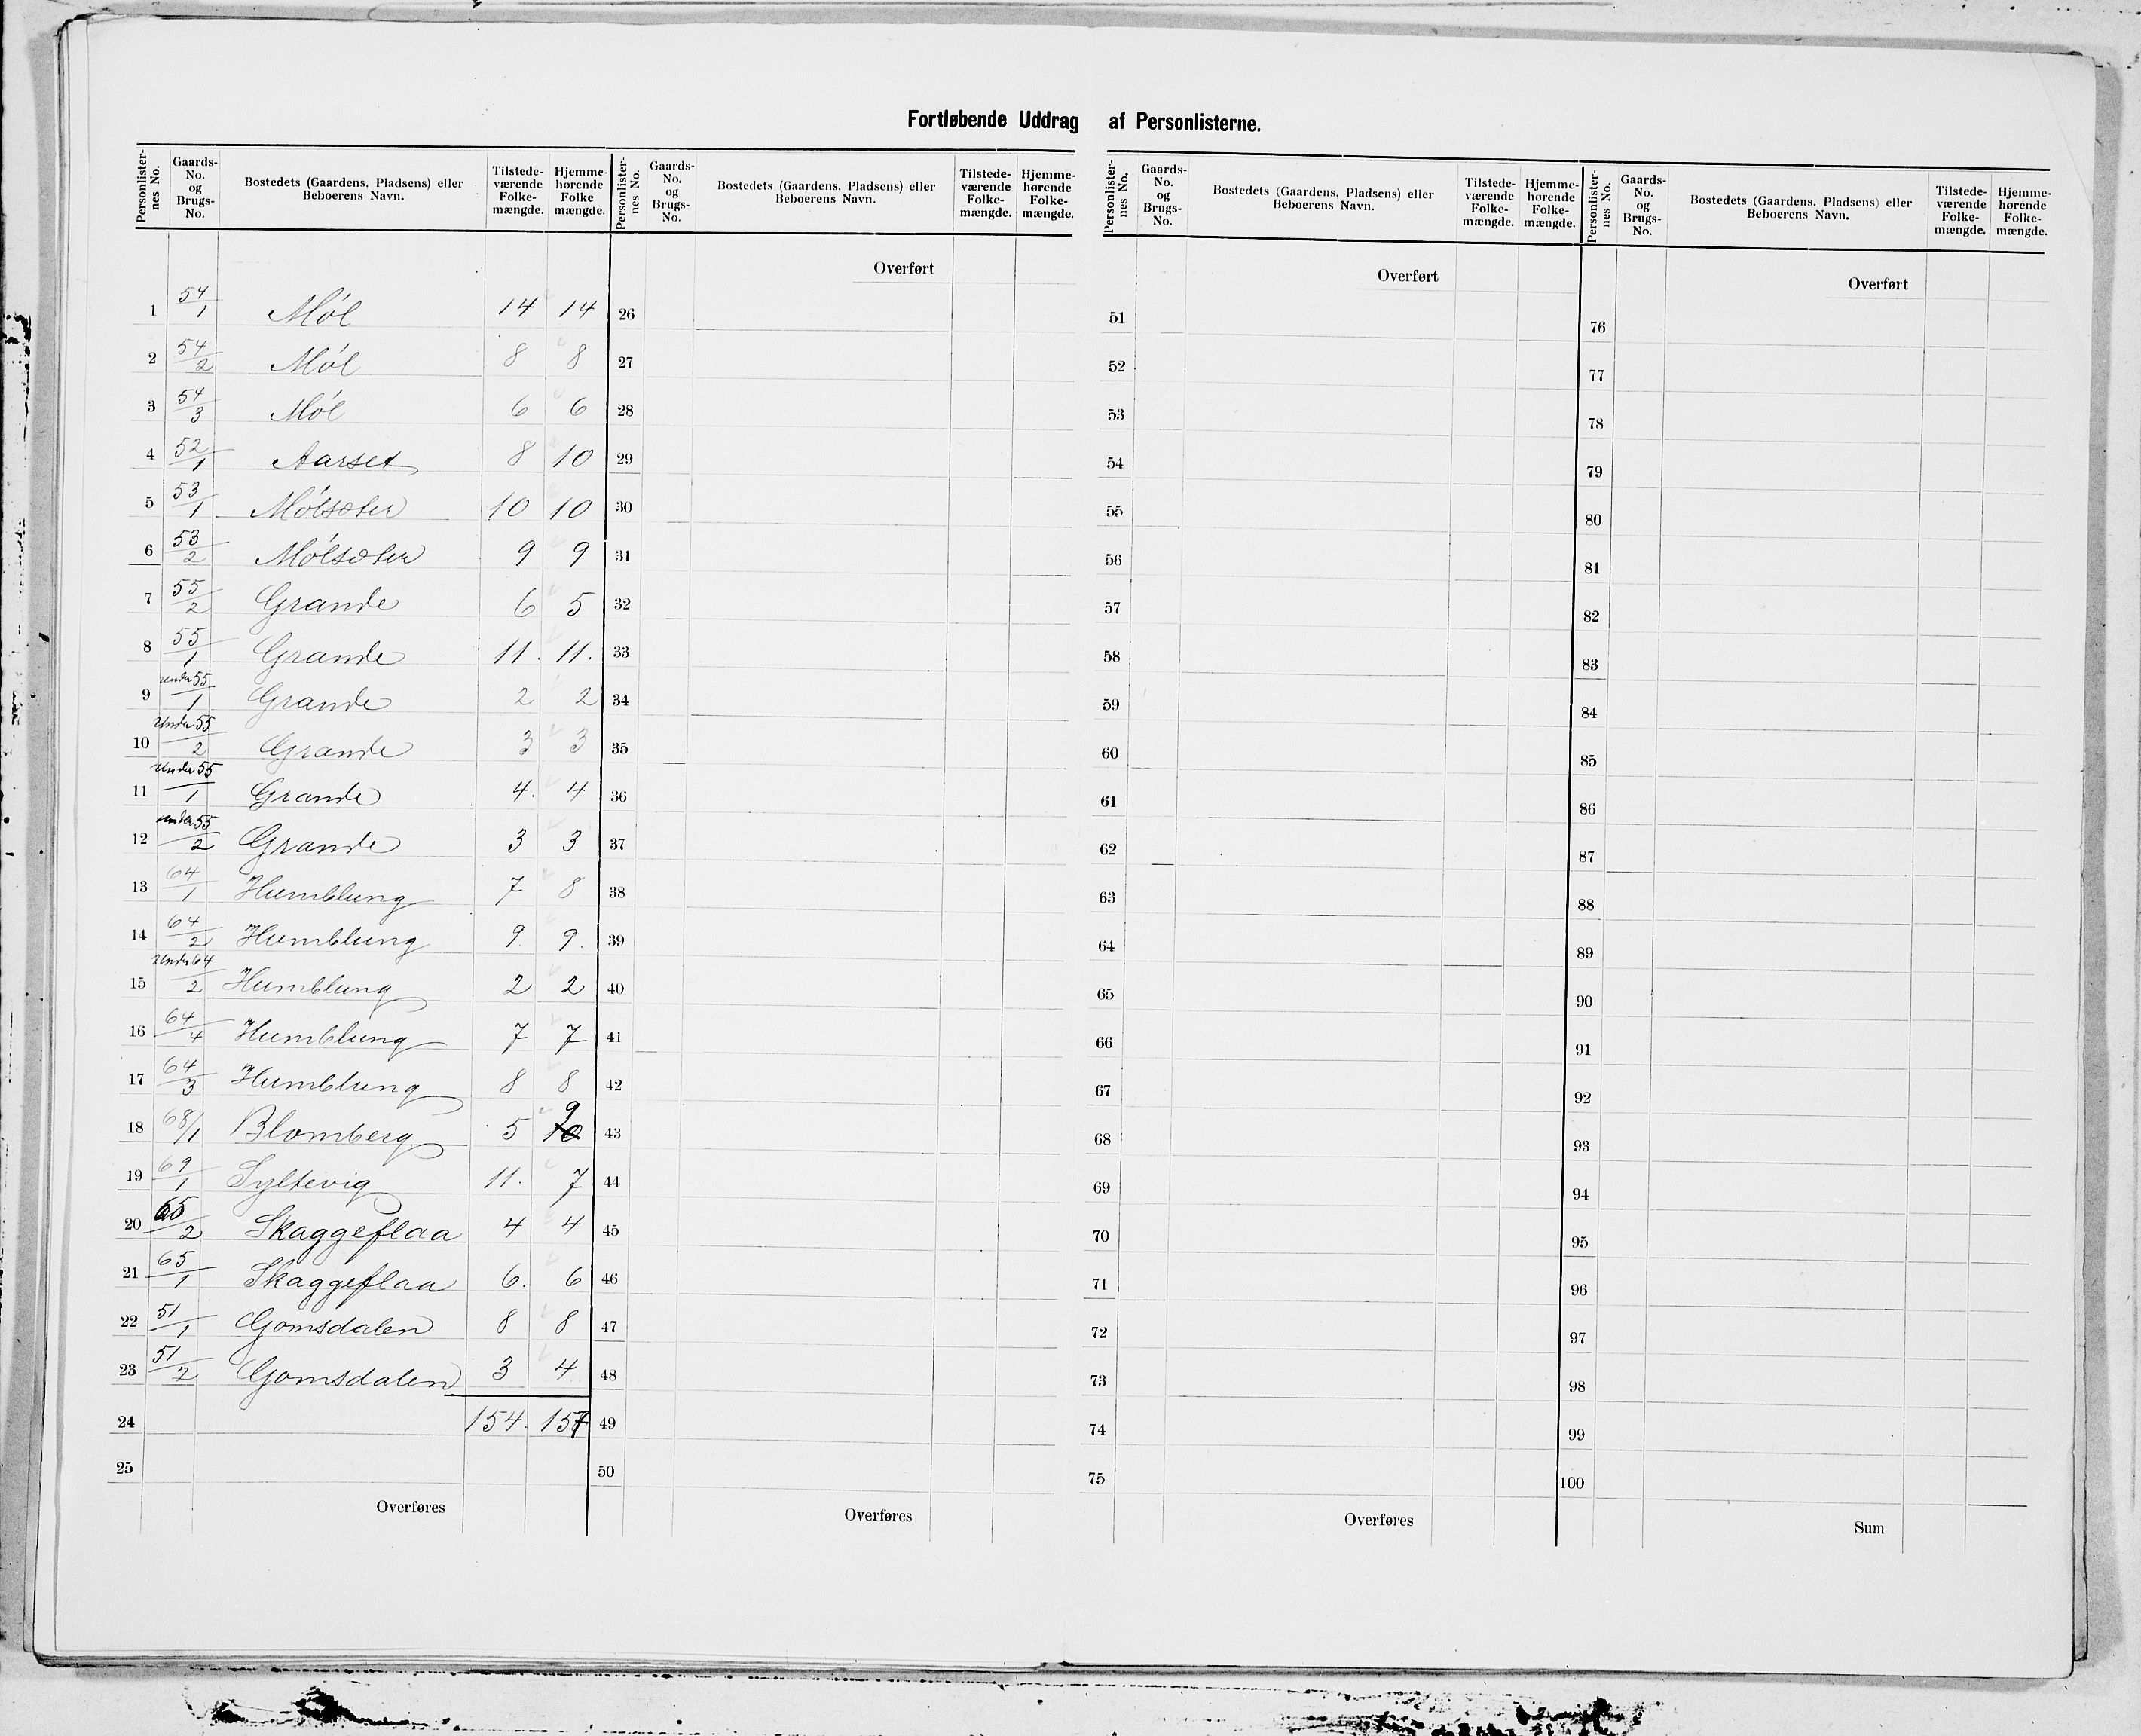 Fortløbende Uddrag af Personlisterne.
Personlisternes No. | Gaards-No. og Brugs-No. | Bostedets (Gaardens, Pladsens) eller Beboerens Navn. | Tilstedeværende Folkemængde. | Hjemmehørende Folke mængde.
1 54/1 Møl 14 14
2 54/2 Møl 8 8
3 54/3 Møl 6 6
4 52/1 Aarset 8 10
5 53/1 Mølsæter 10 10
6 53/2 Mølsæter 9 9
7 55/2 Grande 6 5
8 55/1 Grande 11. 11.
9 under 55/1 Grande 2 2
10 Under 55/2 Grande 3 3
11 Under 55/1 Grande 4. 4
12 under 55/2 Grande 3 3
13 64/1 Humblung 7 8
14 64/2 Humblung 9. 9.
15 Under 64/2 Humblung 2 2
16 64/4 Humblung 7 7
17 64/3 Humblung 8 8
18 68/1 Blomberg 5 9
19 69/1 Syltevig 11. 7
20 65/2 Skaggeflaa 4 4
21 65/1 Skaggeflaa 6. 6
22 51/1 Gomsdalen 8 8
23 51/2 Gomsdalen 3 4
24 154. 157
25
Overføres
Personlisternes No. | Gaards-No. og Brugs-No. | Bostedets (Gaardens, Pladsens) eller Beboerens Navn. | Tilstedeværende Folkemængde. | Hjemmehørende Folkemængde.
Overført
26
27
28
29
30
31
32
33
34
35
36
37
38
39
40
41
42
43
44
45
46
47
48
49
50
Overføres
Personlisternes No. | Gaards-No. og Brugs-No. | Bostedets (Gaardens, Pladsens) eller Beboerens Navn. | Tilstedeværende Folkemængde. | Hjemmehørende Folkemængde.
Overført
51
52
53
54
55
56
57
58
59
60
61
62
63
64
65
66
67
68
69
70
71
72
73
74
75
Overføres
Personlisternes No. | Gaards-No. og Brugs-No. | Bostedets (Gaardens, Pladsens) eller Beboerens Navn. | Tilstedeværende Folkemængde. | Hjemmehørende Folkemængde.
Overført
76
77
78
79
80
81
82
83
84
85
86
87
88
89
90
91
92
93
94
95
96
97
98
99
100
Sum